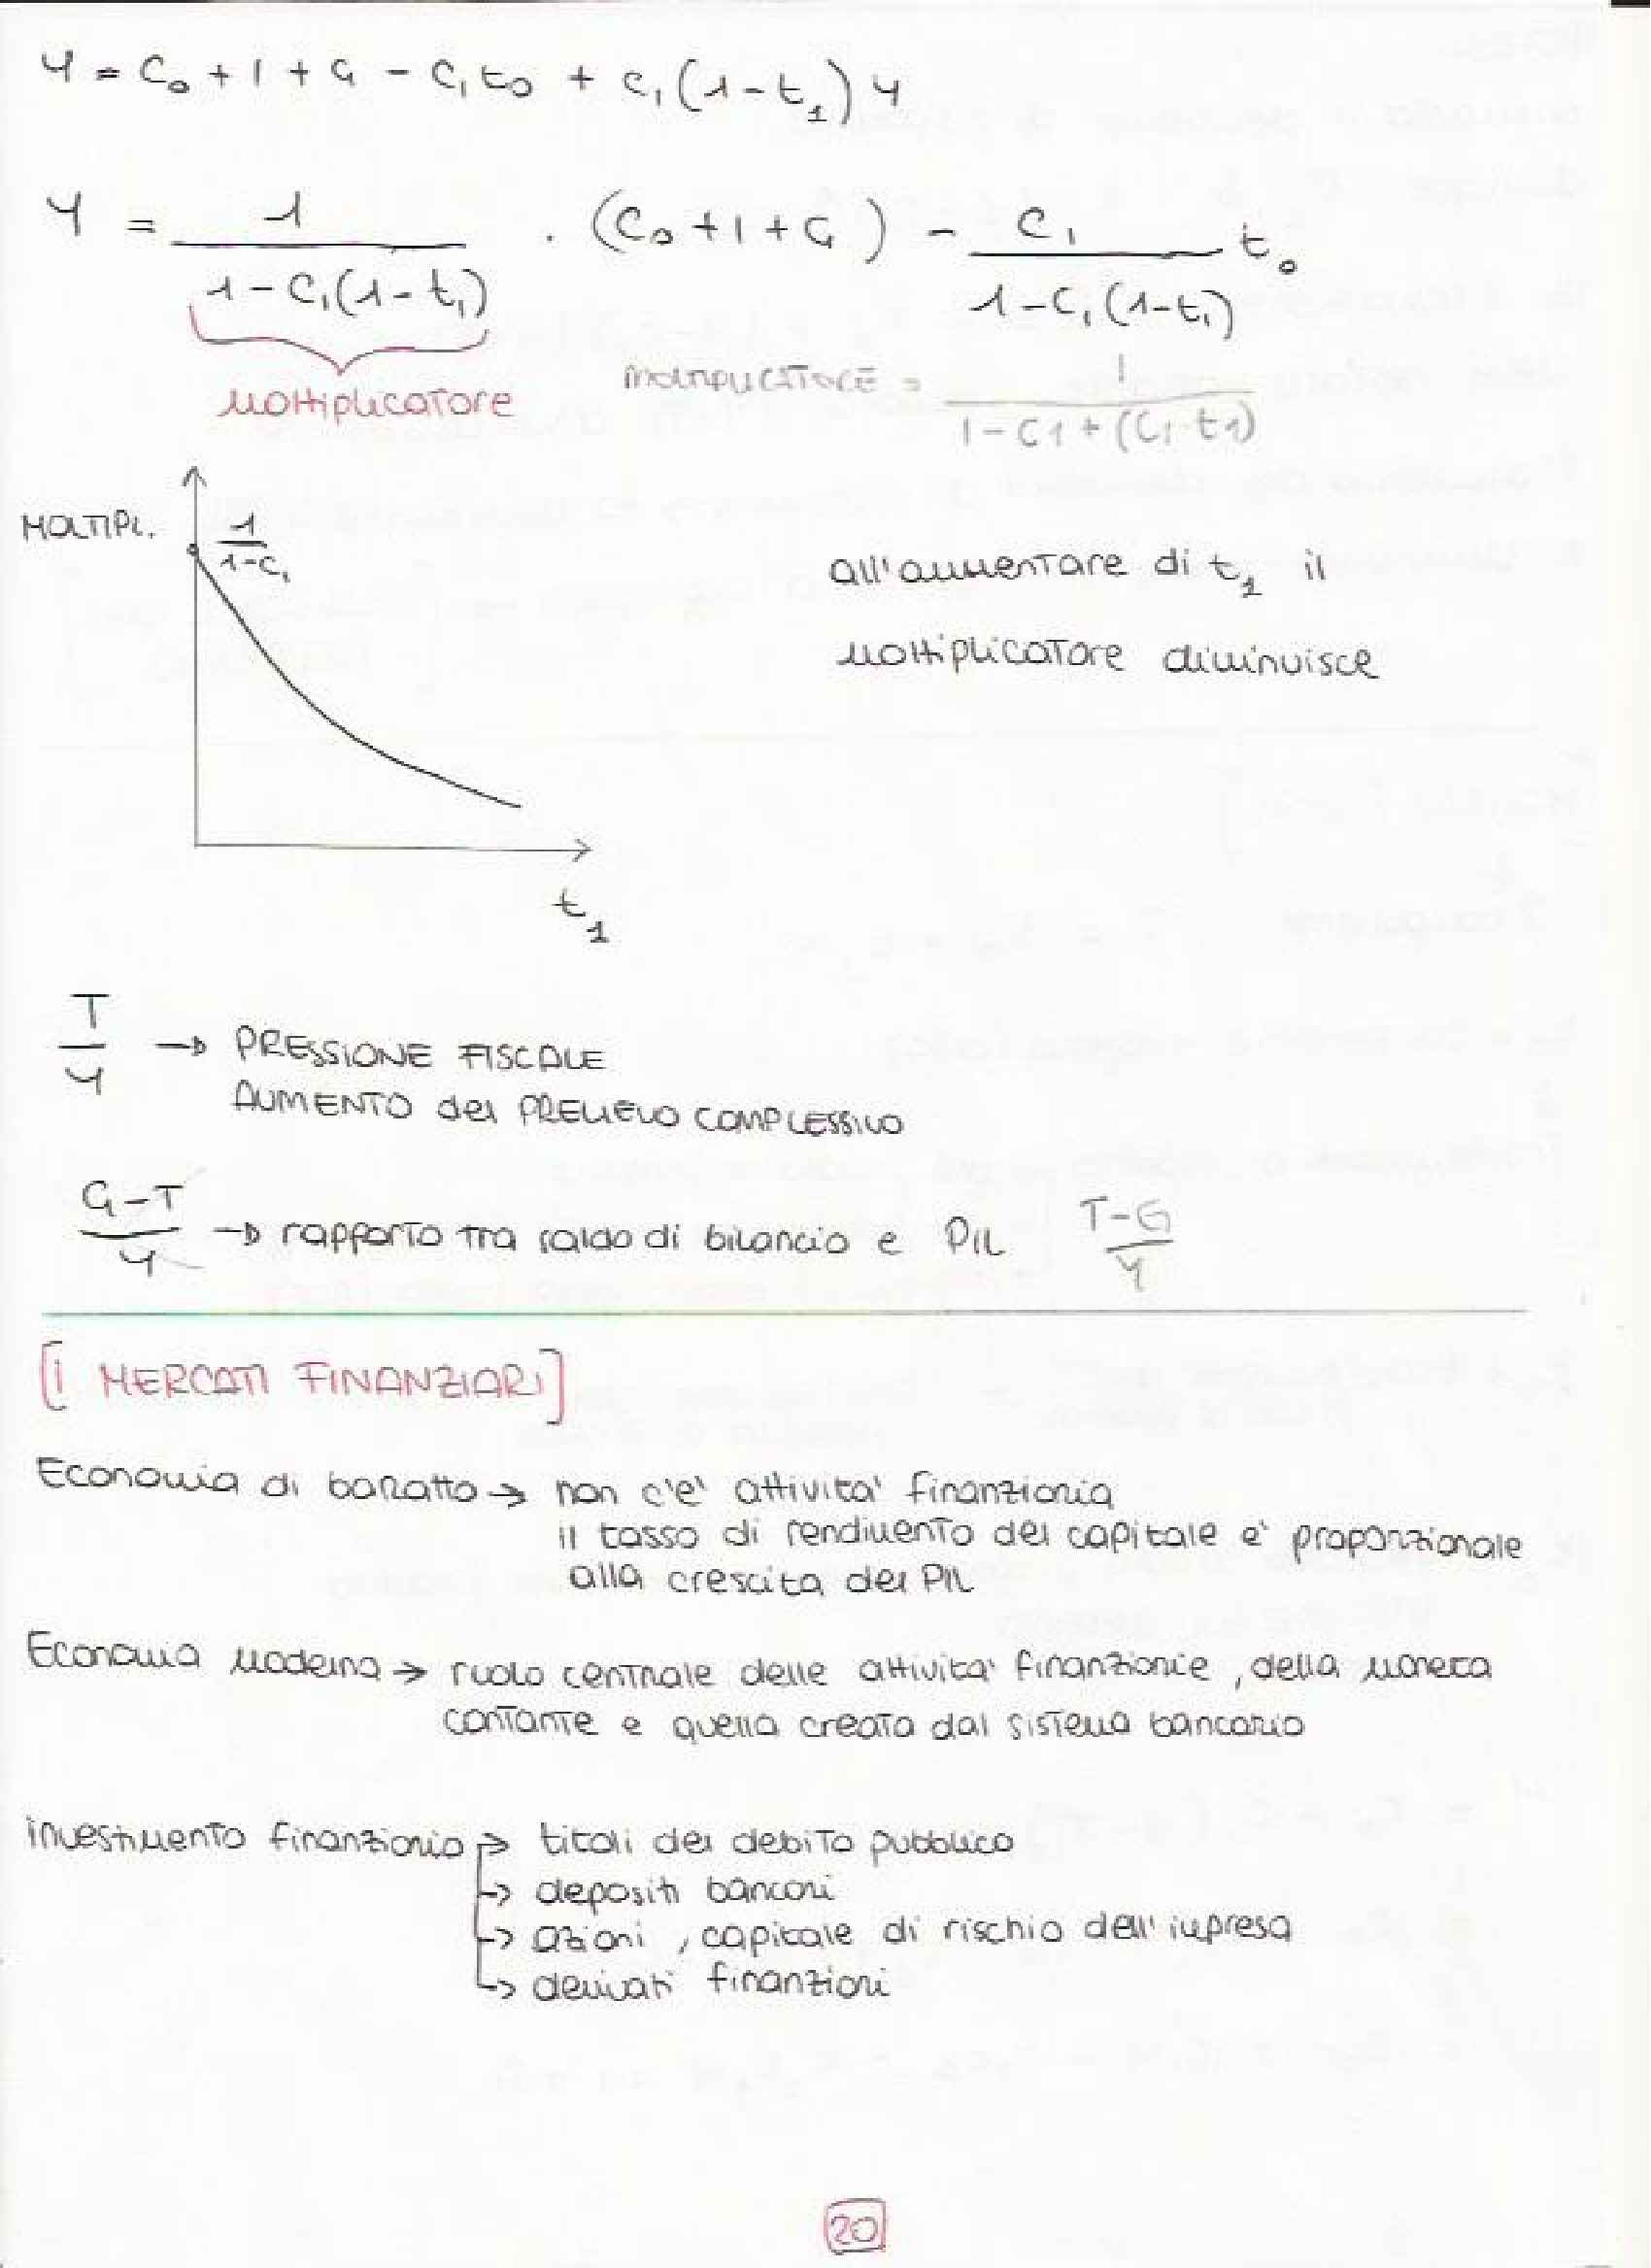 Y = C₀ + I + G - C₁t₀ + C₁(1-t₁)Y
Y = 1 / 1-C₁(1-t₁) · (C₀+I+G) - C₁ / 1-C₁(1-t₁) t₀
Moltiplicatore
MOLTIPLICATORE = 1 / 1-C1+(C1·t1)
MOLTIPL.
1 / 1-C₁
all'aumentare di t₁ il
moltiplicatore diminuisce
t₁
T / Y → PRESSIONE FISCALE
AUMENTO del PRELIEVO COMPLESSIVO
G-T / Y → rapporto tra saldo di bilancio e PIL T-G / Y
[I MERCATI FINANZIARI]
Economia di baratto → non c'e' attivita' finanziaria
il tasso di rendimento del capitale e' proporzionale
alla crescita del PIL
Economia moderna → ruolo centrale delle attivita' finanziarie, della moneta
contante e quella creata dal sistema bancario
investimento finanziario → titoli del debito pubblico
→ depositi bancari
→ azioni, capitale di rischio dell'impresa
→ derivati finanziari
20